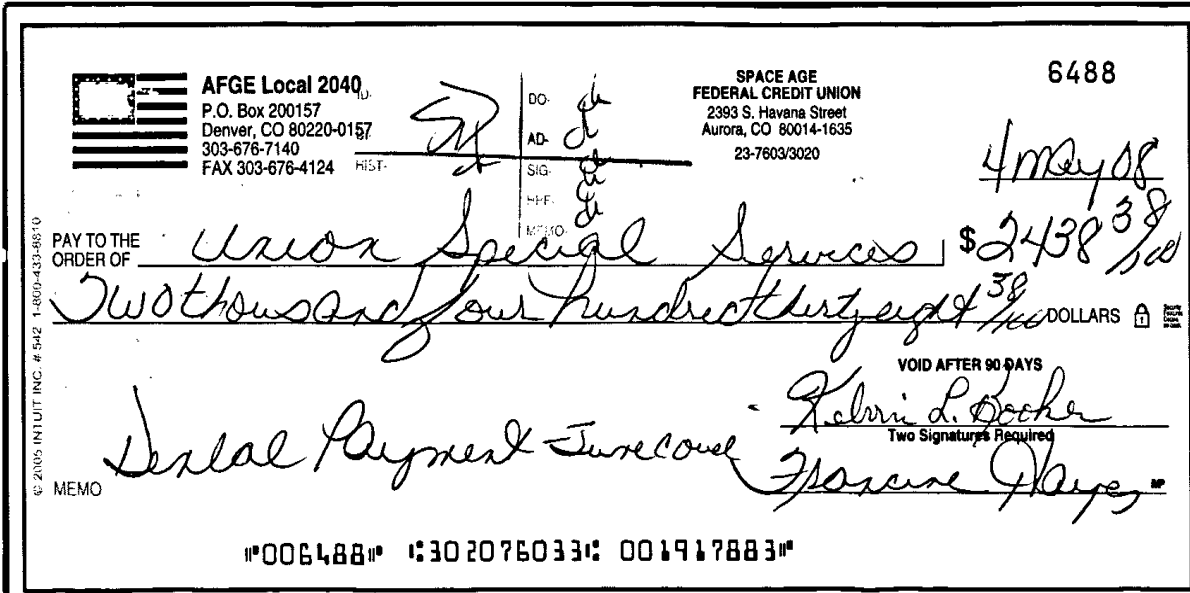 6488
AFGE Local 2040
P.O. Box 200157
Denver, CO 80220-0157
303-676-7140
FAX 303-676-4124
ID-
HIST-
DO-
AD-
SIG-
MEMO-
SPACE AGE
FEDERAL CREDIT UNION
2393 S. Havana Street
Aurora, CO 80014-1635
23-7603/3020
4 May 08
PAY TO THE
ORDER OF Union Special Services $ 2438 38/100
Two thousand four hundred thirty eight 38/100 DOLLARS
VOID AFTER 90 DAYS
Kelvin L. Booker
Two Signatures Required
Francine Hayes
MEMO Dental Payment - June
MP
⑈006488⑈ ⑆302076033⑆ 001917883⑈
© 2005 INTUIT INC. # 542 1-800-433-8810